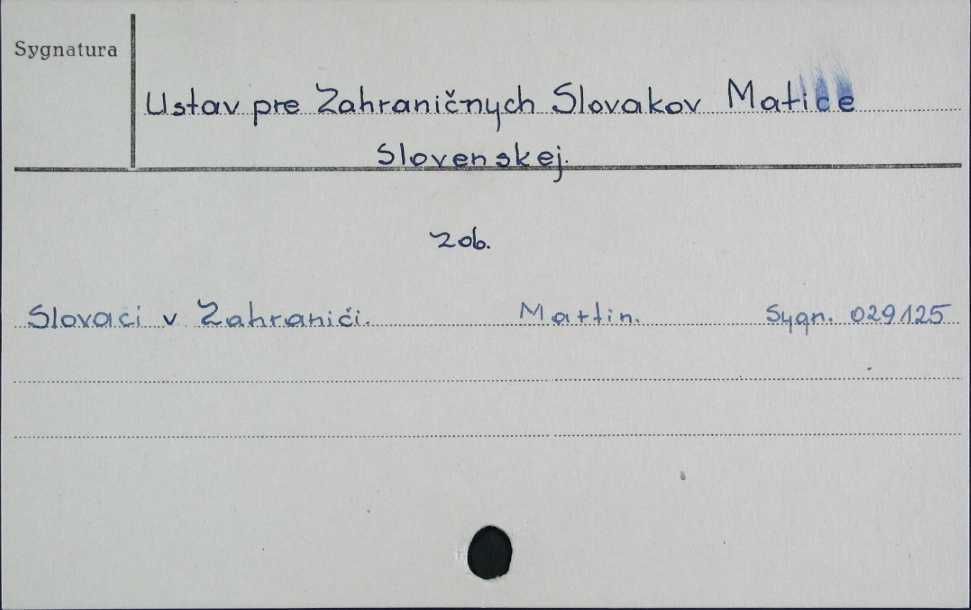 Sygnatura
Ustav pre Zahraničnych Slovakov Matice
Slovenskej.
zob.
Slovaci v Zahranići. Martin. Sygn. 029125